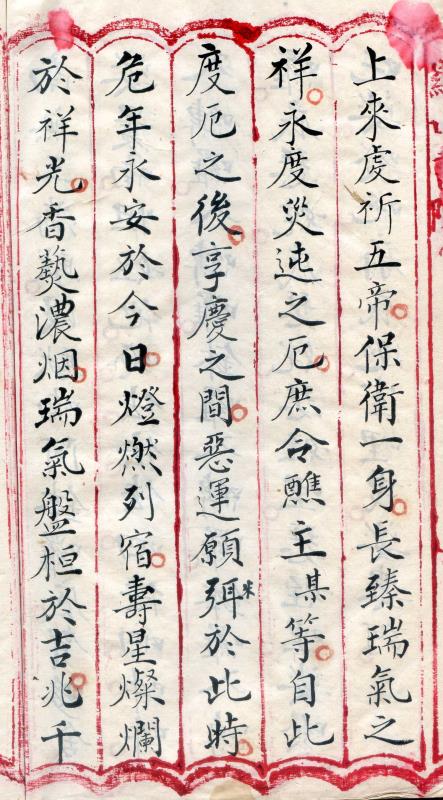 上來虔祈五帝保衛一身長臻瑞氣之
祥永度災迍之厄庶令醮主某等自此
度厄之後享慶之間惡運願弭於此時
米
危年永安於今日燈燃列宿壽星燦爛
於祥光香爇濃烟瑞氣盤桓於吉兆千